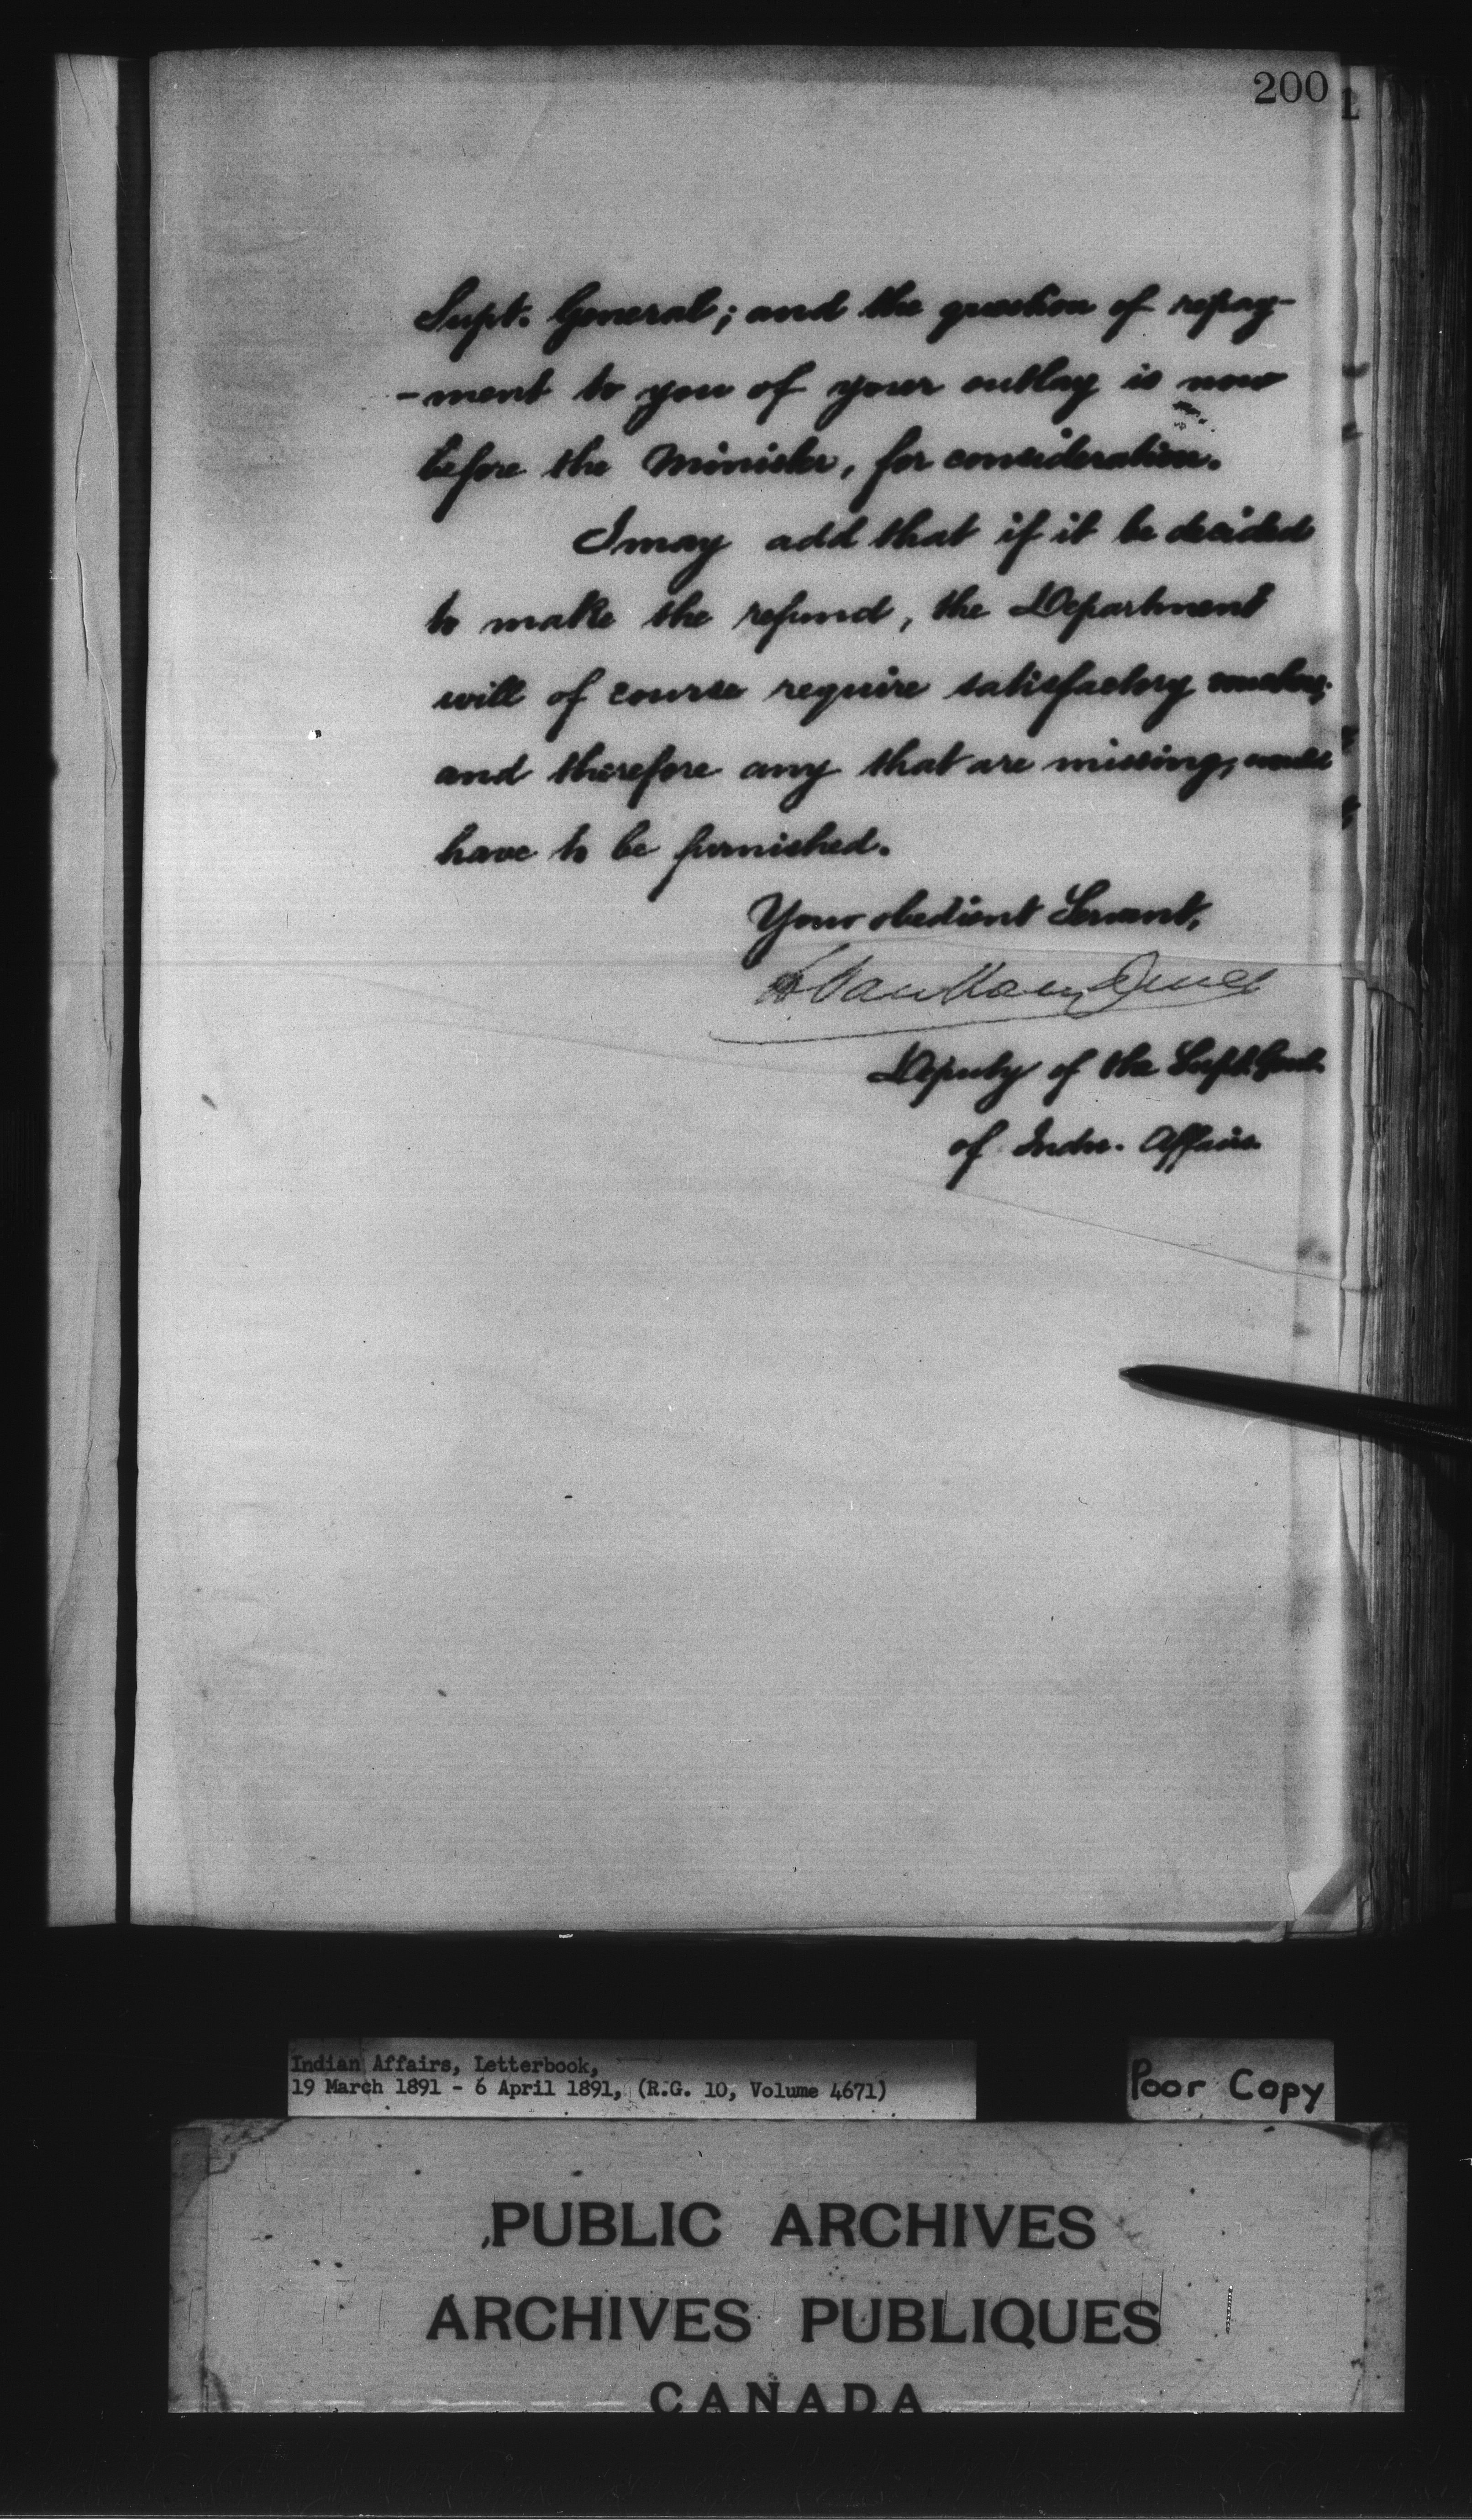 200
Supt. General; and the question of repay-
-ment to you of your outlay is now
before the Minister, for consideration.
I may add that if it be decided
to make the refund, the Department
will of course require satisfactory
and therefore any that are missing, would
have to be furnished.
Your obedient Servant,
L Vankoughnet
Deputy of the Supt. Genl.
of Indn. Affairs.
Indian Affairs, Letterbook,
19 March 1891 - 6 April 1891, (R.G. 10, Volume 4671)
Poor Copy
PUBLIC ARCHIVES
ARCHIVES PUBLIQUES
CANADA